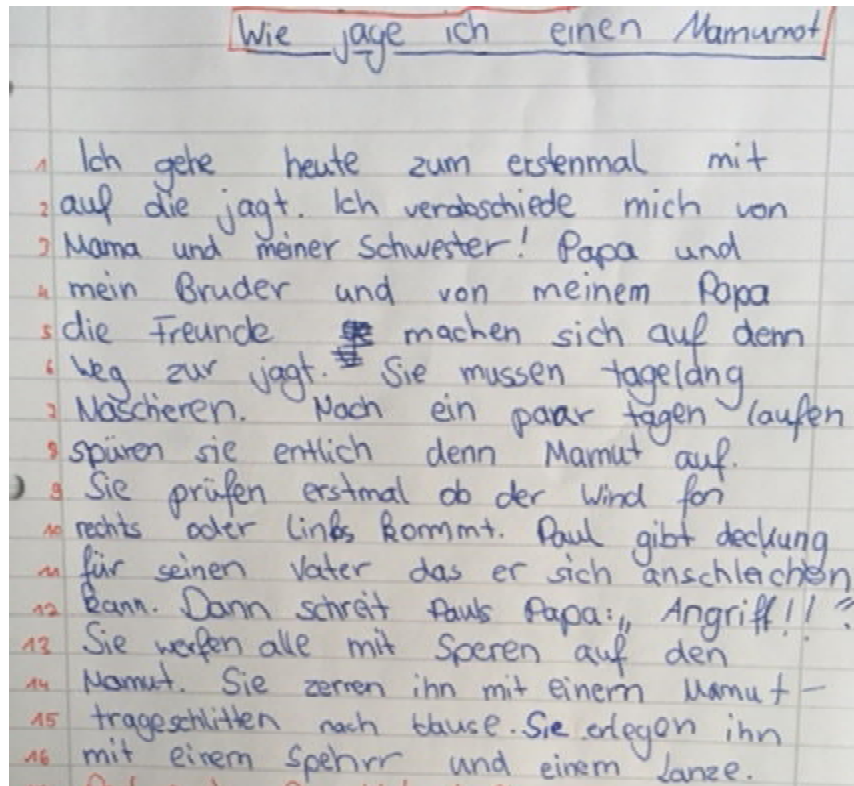 Wie jage ich einen Mamumot
1 Ich gehe heute zum erstenmal mit
2 auf die jagt. Ich verabschiede mich von
3 Mama und meiner Schwester! Papa und
4 mein Bruder und von meinem Papa
5 die Freunde machen sich auf denn
6 Weg zur jagt. Sie mussen tagelang
7 Maschieren. Nach ein paar tagen laufen
8 spüren sie entlich denn Mamut auf.
9 Sie prüfen erstmal ob der Wind fon
10 rechts oder links kommt. Paul gibt deckung
11 für seinen Vater das er sich anschleichen
12 kann. Dann schreit Pauls Papa: „Angriff!!“
13 Sie werfen alle mit Speren auf den
14 Mamut. Sie zerren ihn mit einem Mamut-
15 trageschlitten nach Hause. Sie erlegen ihn
16 mit einem Spehrr und einem Lanze.